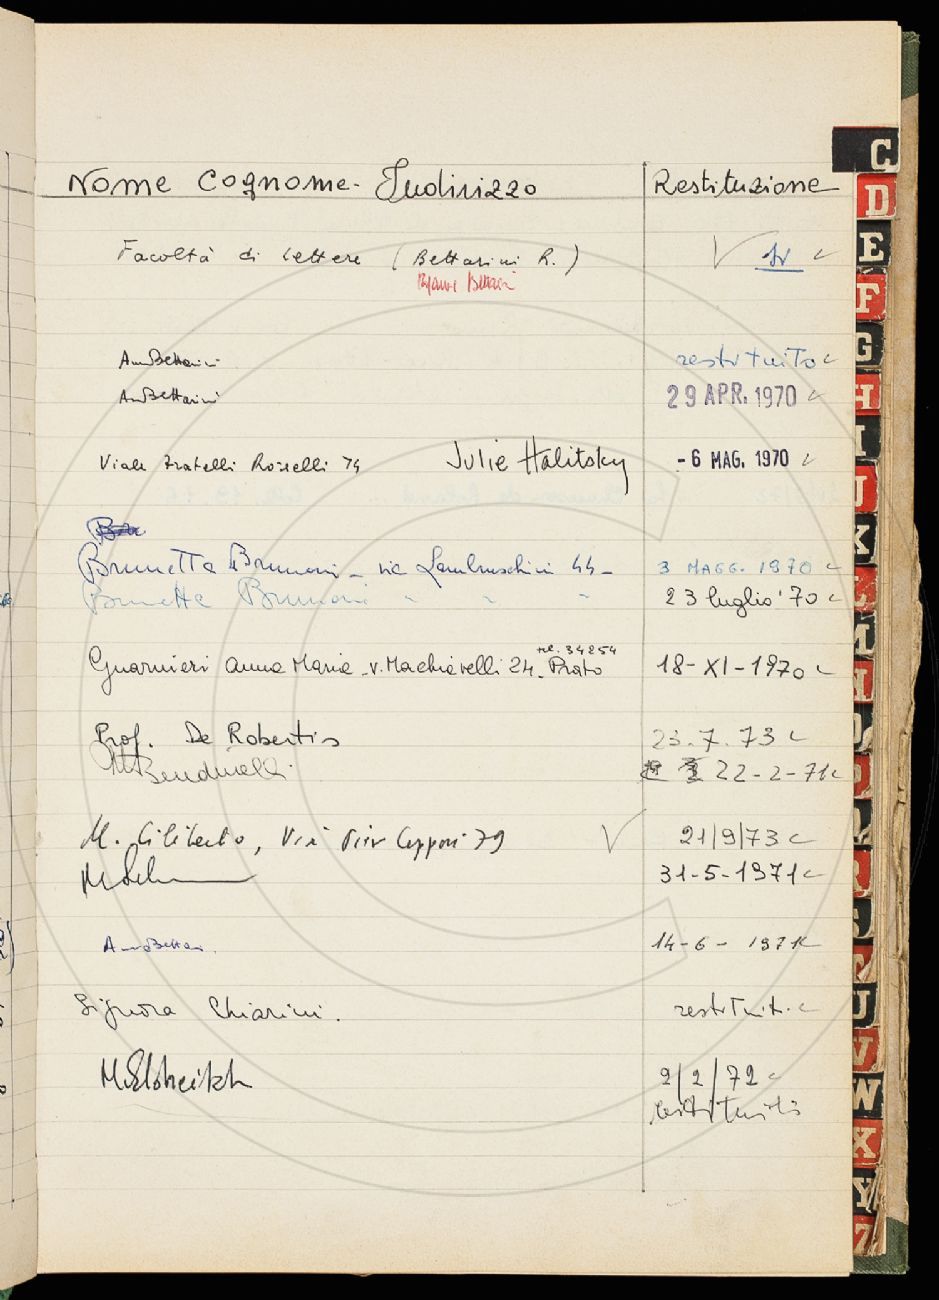 Nome Cognome - Indirizzo Restituzione
Facoltà di Lettere (Bettarini R.)
Bettarini restituito
Bettarini 29 APR. 1970
Viale Fratelli Rosselli 74 Julie Halitsky - 6 MAG. 1970
Brunetta Brunoni - via Lambruschini 44 - 3 MAGG. 1970
Brunetta Brunoni " " " 23 luglio '70
tel. 34254
Guarnieri Anna Maria - v. Machiavelli 24 - Prato 18-XI-1970
Prof. De Robertis 23.7.73
22-2-71
M. Ciliberto, Via Pier Capponi 79 21/9/73
31-5-1971
14-6-1971
Signora Chiarini. restituit.
M. Elsheikh 2/2/72
restituito
C
D
E
F
G
H
I
J
K
L
M
N
O
P
R
U
V
W
X
Y
Z